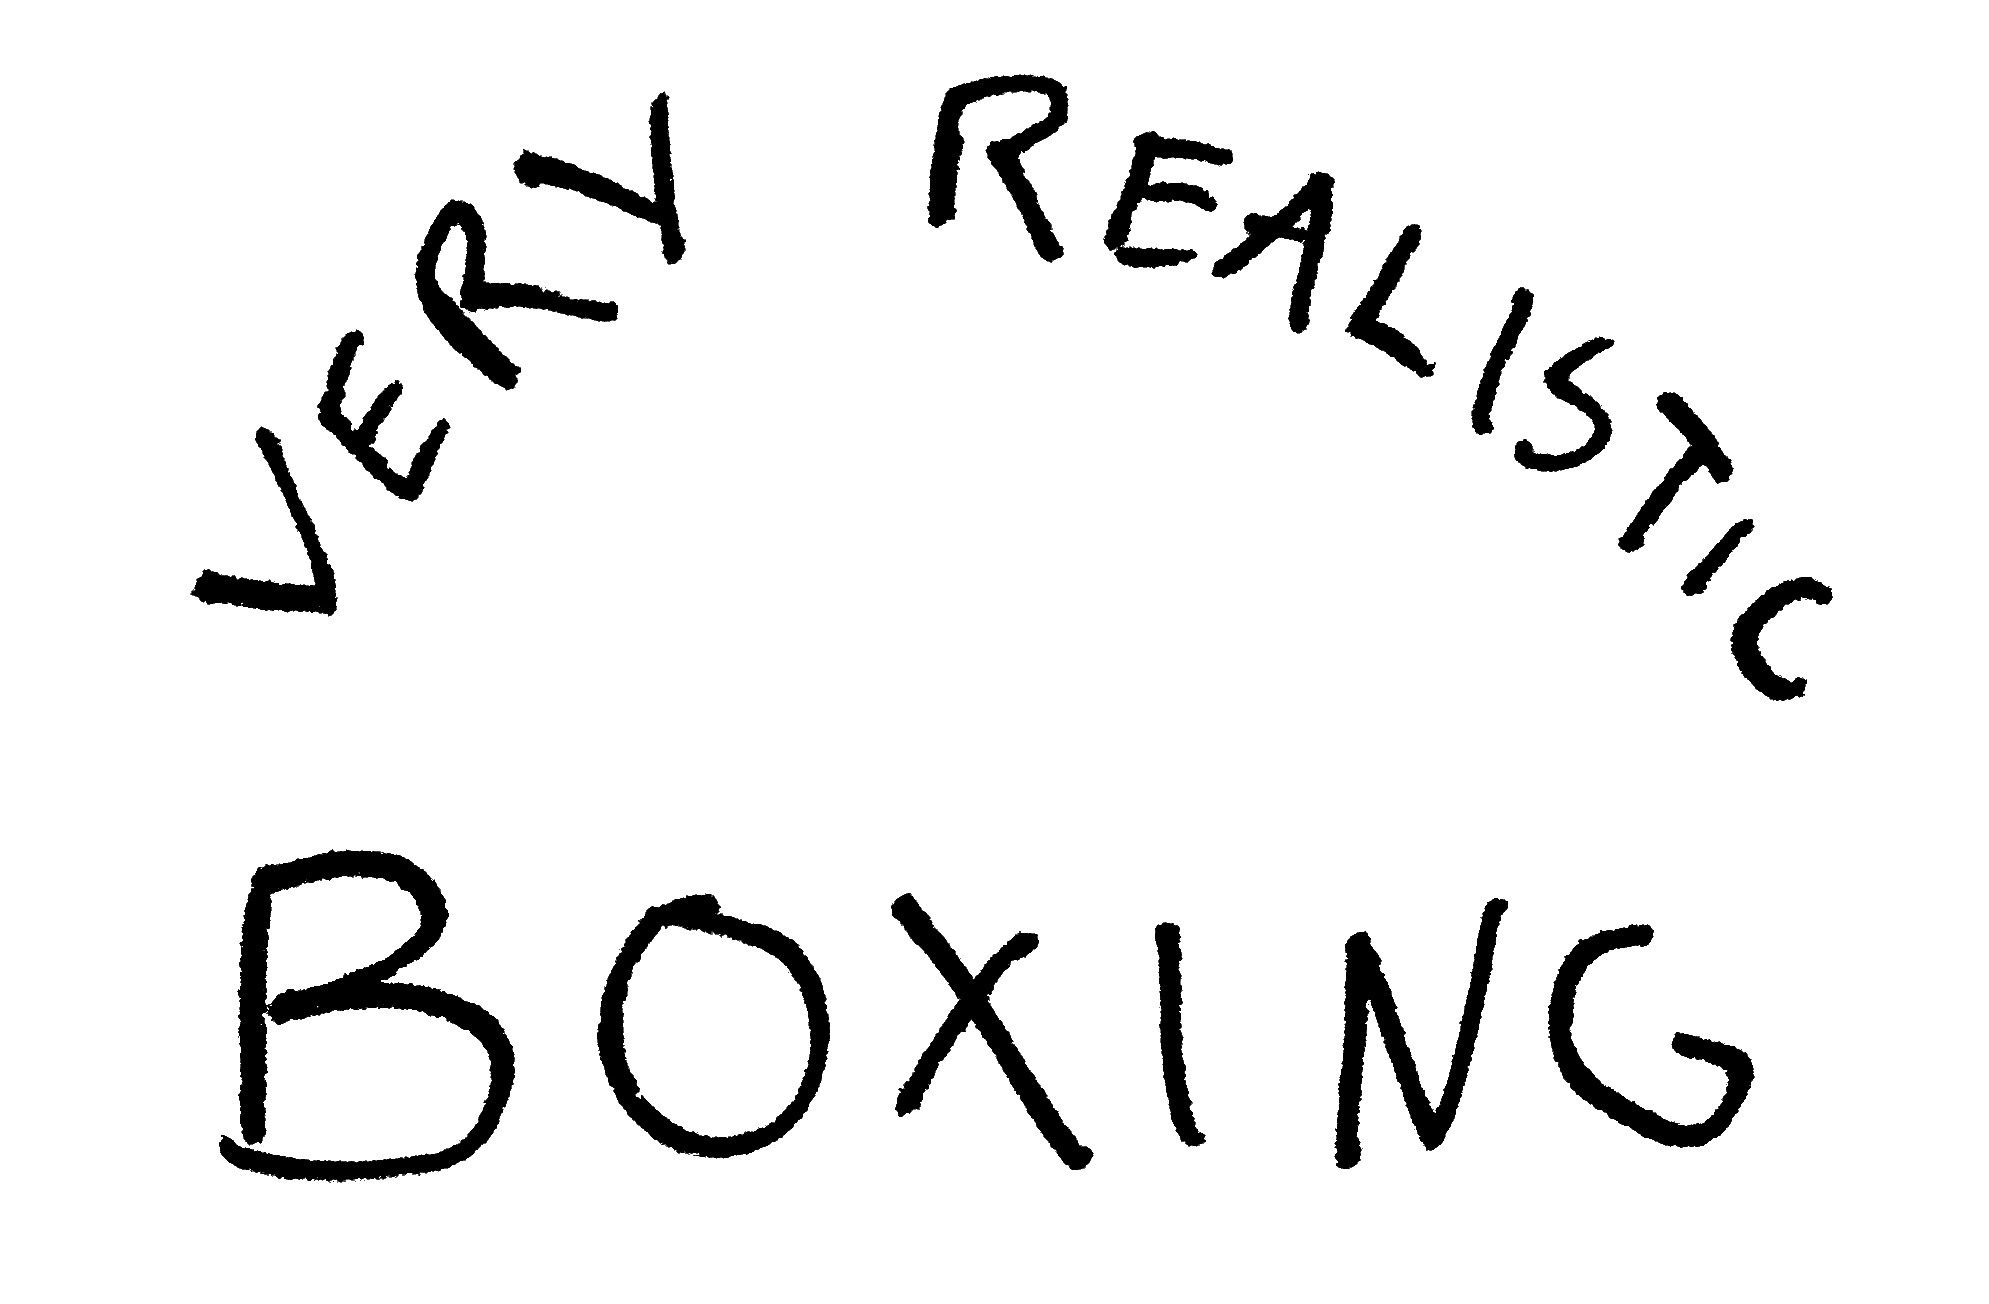 VERY REALISTIC
BOXING